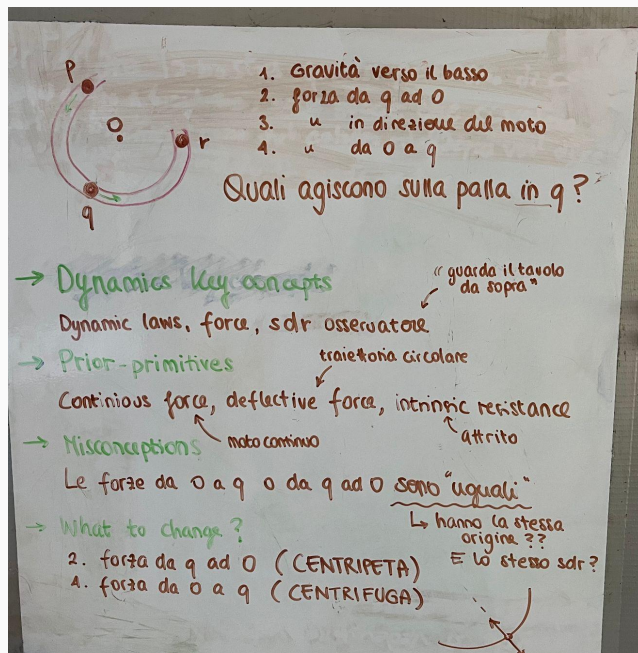 P
O
r
q
1. Gravità verso il basso
2. forza da q ad O
3. " in direzione del moto
4. " da O a q
Quali agiscono sulla palla in q?
→ Dynamics key concepts
"guarda il tavolo
da sopra"
Dynamic laws, force, sdr osservatore
→ Prior-primitives
traiettoria circolare
Continious force, deflective force, intrinsic resistance
moto continuo
attrito
→ Misconceptions
Le forze da O a q o da q ad O sono "uguali"
↳ hanno la stessa
origine??
E lo stesso sdr?
→ What to change?
2. forza da q ad O (CENTRIPETA)
4. forza da O a q (CENTRIFUGA)